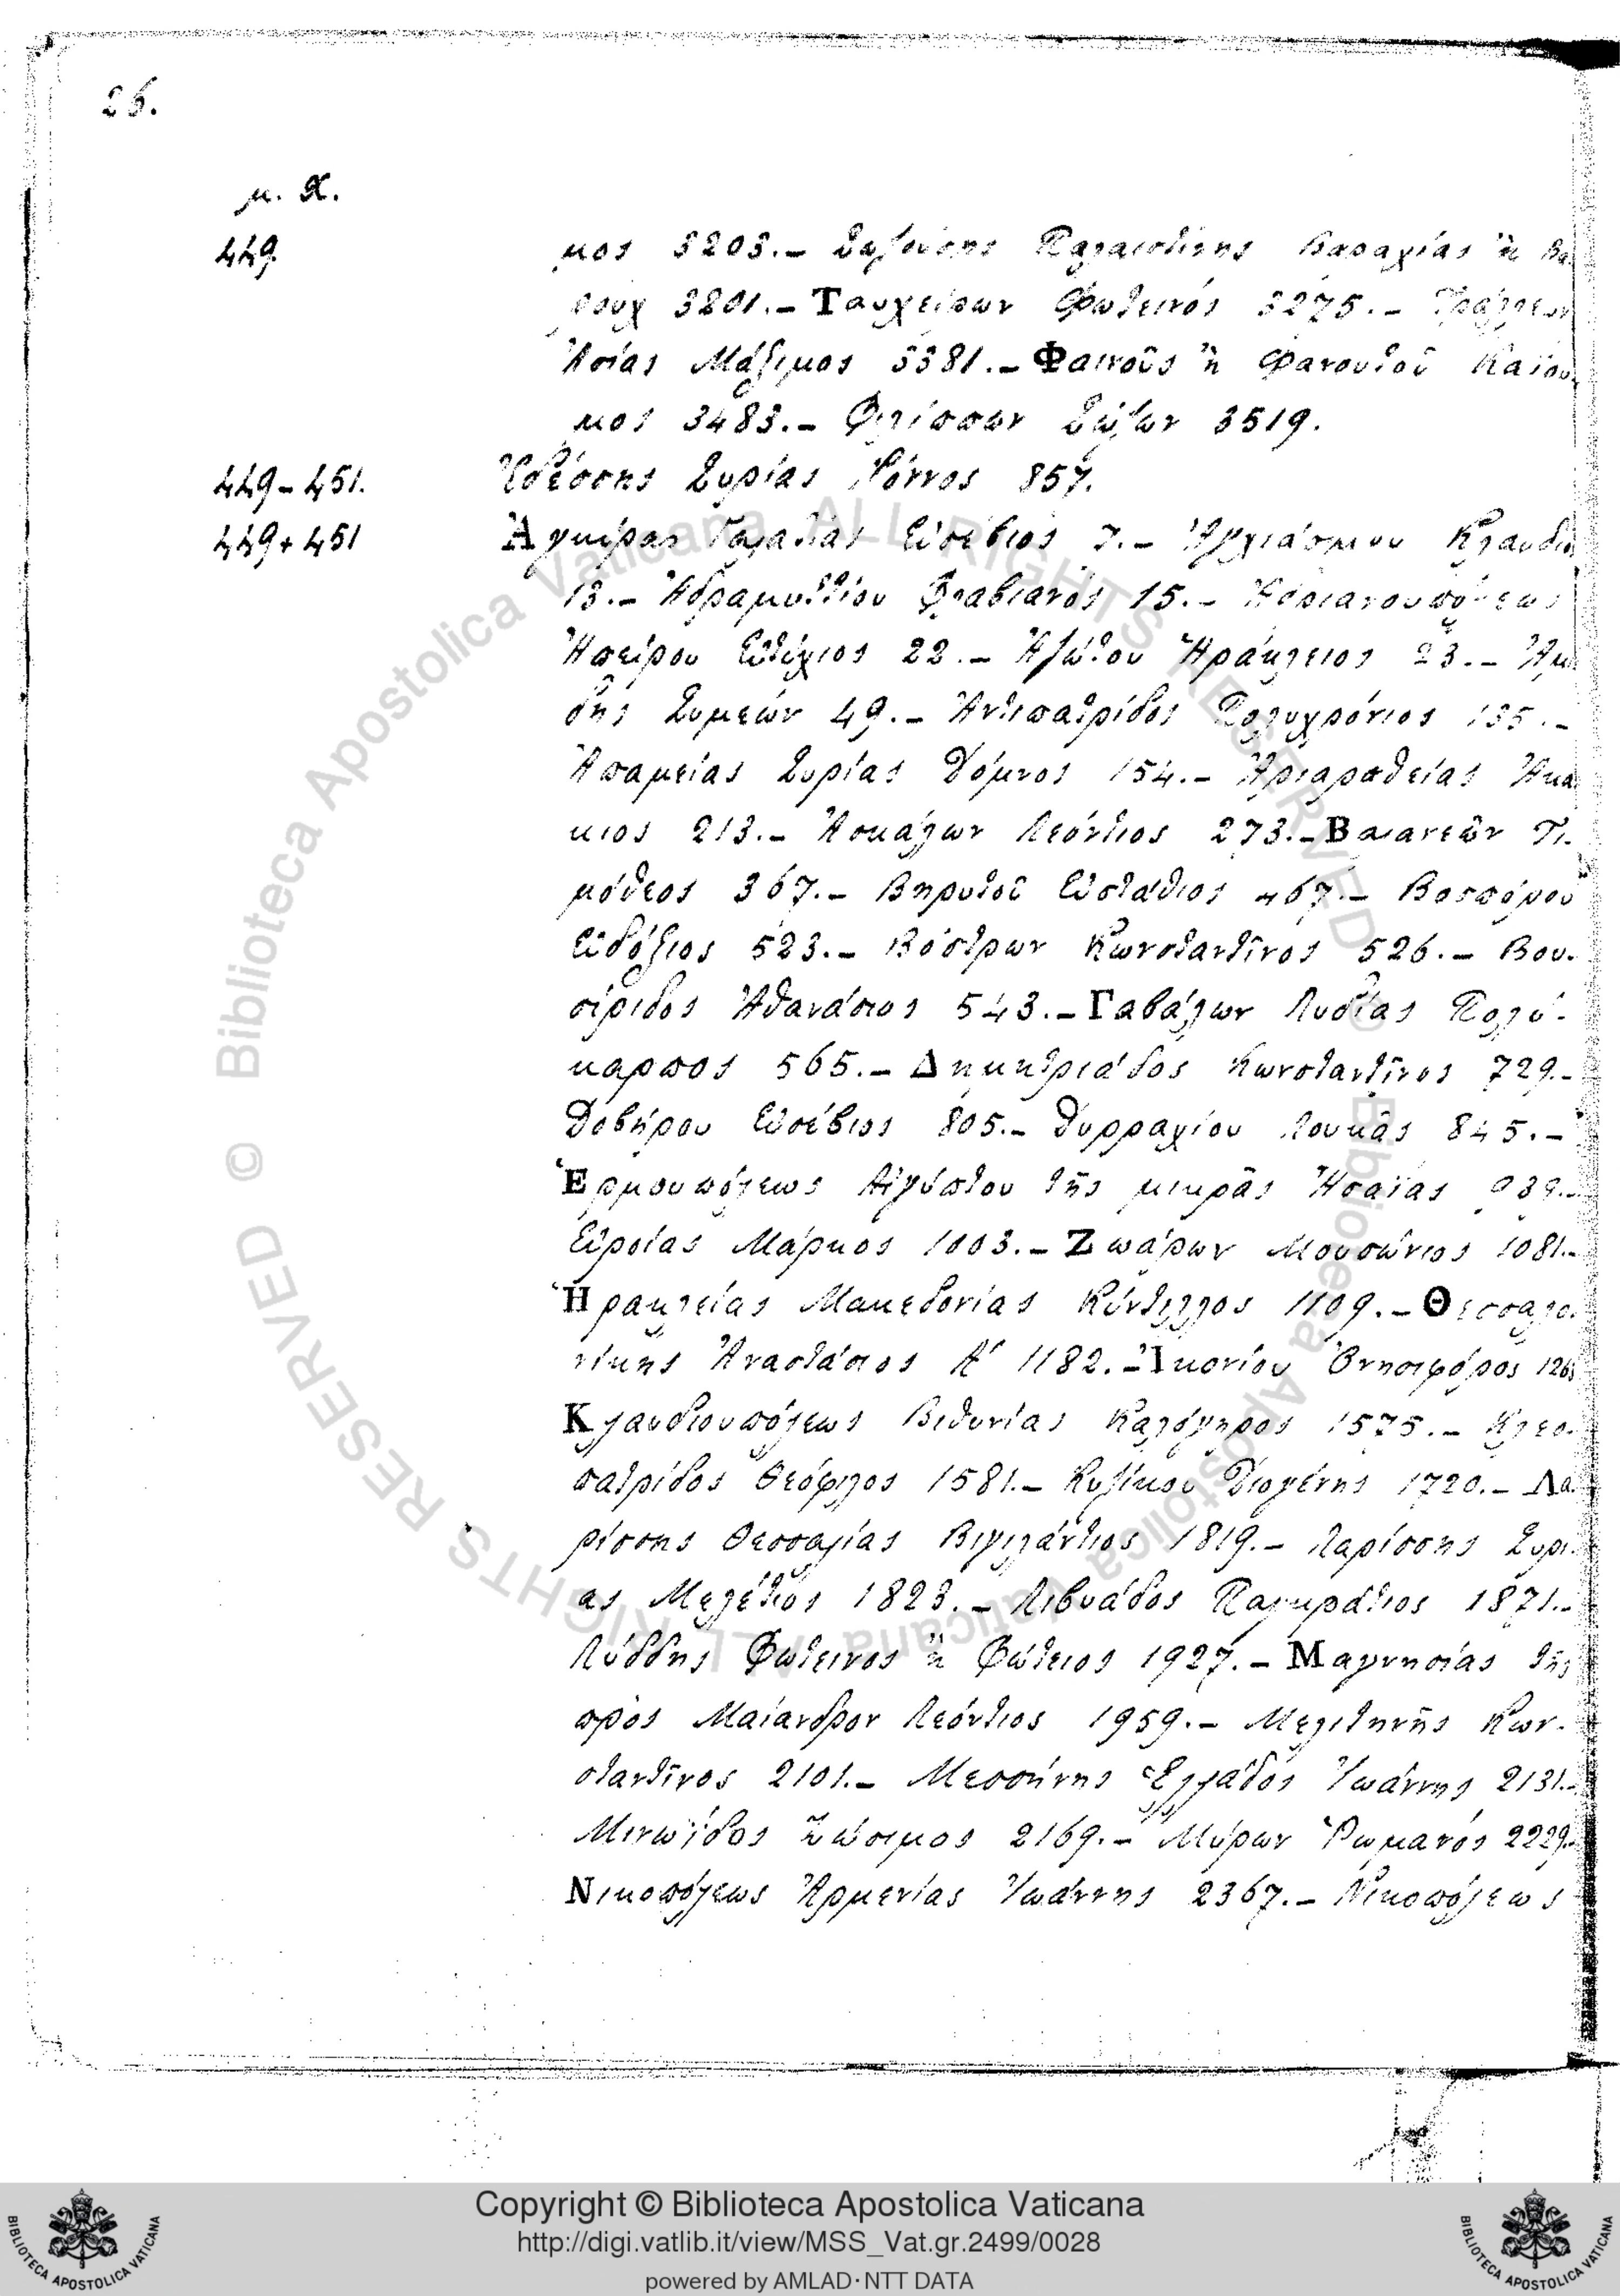 26.
μ. Χ.
449. μος 3203.– Σωζούσης Παλαιστίνης Βαραχίας ἢ Βα
ρουχ 3201.– Ταυχείρων Φωτεινός 3275.– Τράλλεων
Ἀσίας Μάξιμος 3381.– Φαινοῦς ἢ Φανουτοῦ Καϊου
μος 3483.– Φιλίππων Σώζων 3519.
449–451. Ἐδέσσης Συρίας Νόννος 857.
449+451 Ἀγκύρας Γαλατίας Εὐσέβιος 7.– Ἀγχιάσμου Κλαυδιο
13.– Ἀδραμυττίου Φλαβιανός 15.– Ἀδριανουπόλεως
Ἠπείρου Εὐτύχιος 22.– Ἀζώτου Ἡράκλειος 23.– Ἀμι
δης Συμεών 49.– Ἀντιπατρίδος Πολυχρόνιος 135.–
Ἀπαμείας Συρίας Δόμνος 154.– Ἀριαραθείας Ἀκα
κιος 213.– Ἀσκάλων Λεόντιος 273.– Βαιανεῶν Τι.
μόθεος 367.– Βηρυτοῦ Εὐστάθιος 467.– Βοσπόρου
Εὐδόξιος 523.– Βόστρων Κωνσταντῖνος 526.– Βου.
σίριδος Ἀθανάσιος 543.– Γαβάλων Λυδίας Πολύ-
καρπος 565.– Δημητριάδος Κωνσταντῖνος 729.–
Δοβήρου Εὐσέβιος 805.– Δυρραχίου Λουκᾶς 845.–
Ἑρμουπόλεως Αἰγύπτου τῆς μικρᾶς Ἠσαΐας 939.–
Εὐροίας Μάρκος 1003.– Ζωάρων Μουσώνιος 1081.–
Ἡρακλείας Μακεδονίας Κύντιλλος 1109.– Θεσσαλο.
νίκης Ἀναστάσιος Α' 1182.– Ἰκονίου Ὀνησιφόρος 126
Κλαυδιουπόλεως Βιθυνίας Καλόγηρος 1575.– Κλεο.
πατρίδος Θεόφιλος 1581.– Κυζίκου Διογένης 1720.– Λα.
ρίσσης Θεσσαλίας Βιγιλάντιος 1819.– Λαρίσσης Συρι.
ας Μελέτιος 1823.– Λιβυάδος Παγκράτιος 1871.–
Λύδδης Φωτεινος ἢ Φώτειος 1927.– Μαγνησίας τῆς
πρὸς Μαίανδρον Λεόντιος 1959.– Μελιτηνῆς Κων.
σταντῖνος 2101.– Μεσσήνης Ἑλλάδος Ἰωάννης 2131.–
Μινωΐδος Ζώσιμος 2169.– Μύρων Ῥωμανός 2229.–
Νικοπόλεως Ἀρμενίας Ἰωάννης 2367.– Νικοπόλεως
© Biblioteca Apostolica Vaticana ALL RIGHTS RESERVED © Biblioteca Apostolica Vaticana ALL RIGHTS RESERVED
BIBLIOTECA APOSTOLICA VATICANA
Copyright © Biblioteca Apostolica Vaticana
http://digi.vatlib.it/view/MSS_Vat.gr.2499/0028
powered by AMLAD·NTT DATA
BIBLIOTECA APOSTOLICA VATICANA